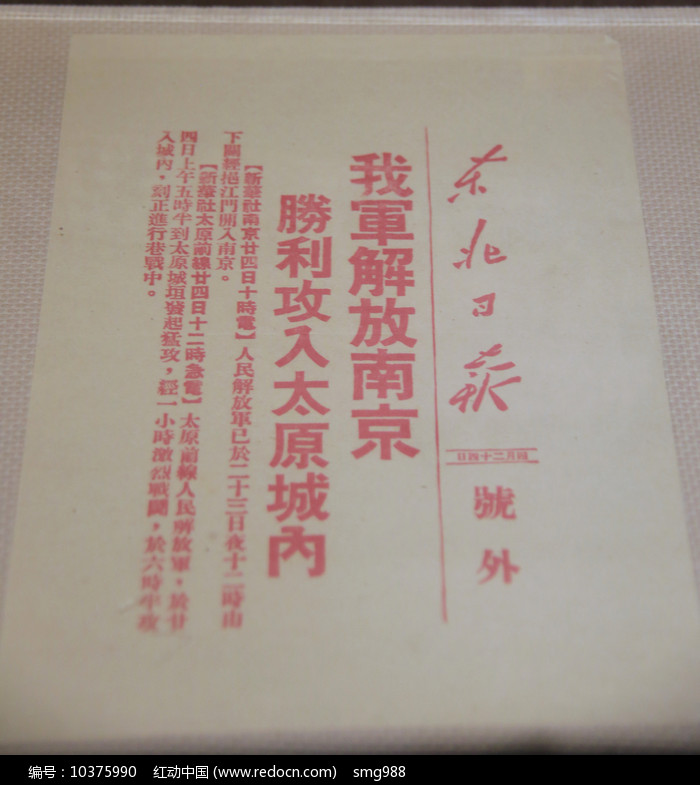 东北日报
四月二十四日
號外
我軍解放南京
勝利攻入太原城內
【新華社南京廿四日十時電】人民解放軍已於二十三日夜十二時由
下關經挹江門開入南京。
【新華社太原前線廿四日十二時急電】太原前線人民解放軍，於廿
四日上午五時半到太原城垣發起猛攻，經一小時激烈戰鬭，於六時半攻
入城內，刻正進行巷戰中。
编号：10375990 红动中国 (www.redocn.com) smg988